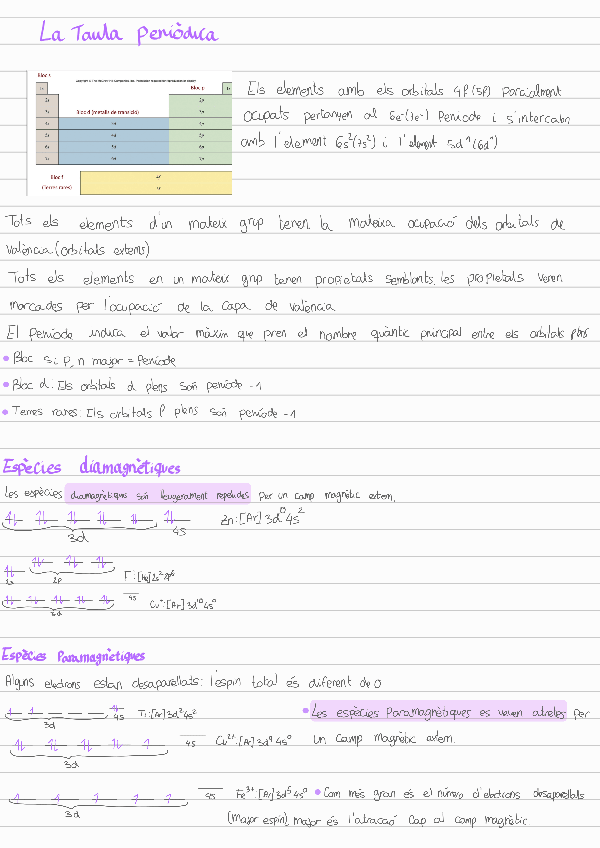 La Taula Periòdica
Bloc s
Bloc p
1s
1s
2s
2p
3s
Bloc d (metalls de transició)
3p
4s
3d
4p
5s
4d
5p
6s
5d
6p
7s
6d
7p
Bloc f
4f
(Terres rares)
5f
Els elements amb els orbitals 4f (5f) parcialment
ocupats pertanyen al 6e (7e) Període i s'intercalen
amb l'element 6s²(7s²) i l'element 5d¹(6d¹)
Tots els elements d'un mateix grup tenen la mateixa ocupació dels orbitals de
València (orbitals externs)
Tots els elements en un mateix grup tenen propietats semblants, les propietats venen
marcades per l'ocupació de la capa de valència
El Període indica el valor màxim que pren el nombre quàntic principal entre els orbitals plens
• Bloc s i p, n major = Període
• Bloc d: Els orbitals d plens són període -1
• Terres rares: Els orbitals f plens són període -1
Espècies diamagnètiques
Les espècies diamagnètiques són lleugerament repelides per un camp magnètic extern.
3d 4s Zn: [Ar] 3d¹⁰4s²
2s 2p
4s
3d Cu⁺: [Ar] 3d¹⁰4s⁰
Espècies Paramagnètiques
Alguns electrons estan desaparellats: l'espin total és diferent de 0
3d 4s Ti: [Ar] 3d²4s²
• Les espècies Paramagnètiques es veuen atretes per
un camp magnètic extern.
3d 4s Cu²⁺: [Ar] 3d⁹4s⁰
3d 4s Fe³⁺: [Ar] 3d⁵4s⁰
• Com més gran és el número d'electrons desaparellats
(major espin) major és l'atracció cap al camp magnètic